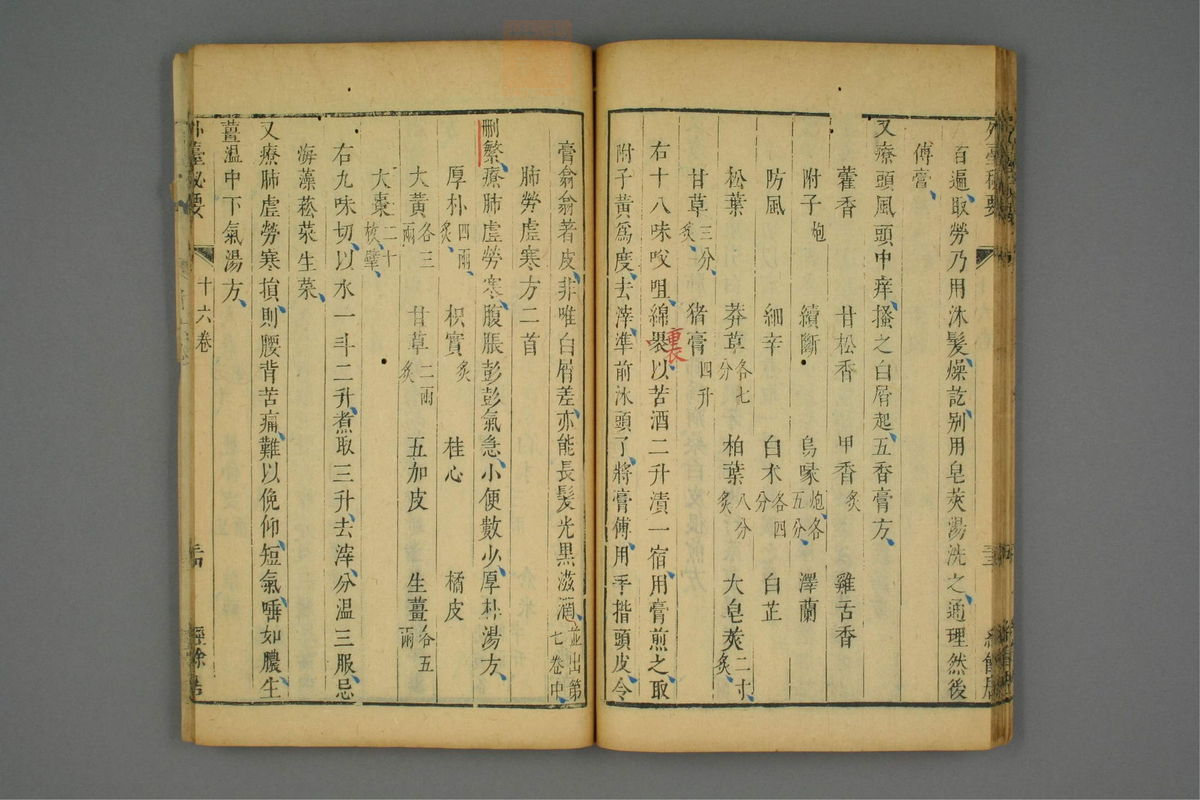 百遍取勞乃用沐髮燥訖别用皂莢湯洗之通理然後
傅膏
又療頭風頭中痒搔之白屑起五香膏方
藿香 甘松香 甲香炙 雞舌香
附子炮 續斷 烏喙炮各五分 澤蘭
防風 細辛 白朮各四分 白芷
松葉 莽草各七分 柏葉八分炙 大皂莢二寸炙
甘草三分炙 猪膏四升
右十八味㕮咀綿裹以苦酒二升漬一宿用膏煎之取
裹
附子黄為度去滓準前沐頭了將膏傅用手揩頭皮令
膏翕翕著皮非唯白屑差亦能長髮光黑滋潤並出第七卷中
肺勞虛寒方二首
刪繁療肺虛勞寒腹脹彭彭氣急小便數少厚朴湯方
厚朴四兩炙 枳實炙 桂心 橘皮
大黄各三兩 甘草二兩炙 五加皮 生薑各五兩
大棗二十枚擘
右九味切以水一斗二升煮取三升去滓分温三服忌
海藻菘菜生菜
又療肺虛勞寒損則腰背苦痛難以俛仰短氣唾如膿生
薑温中下氣湯方
外臺秘要 十六卷 經餘居